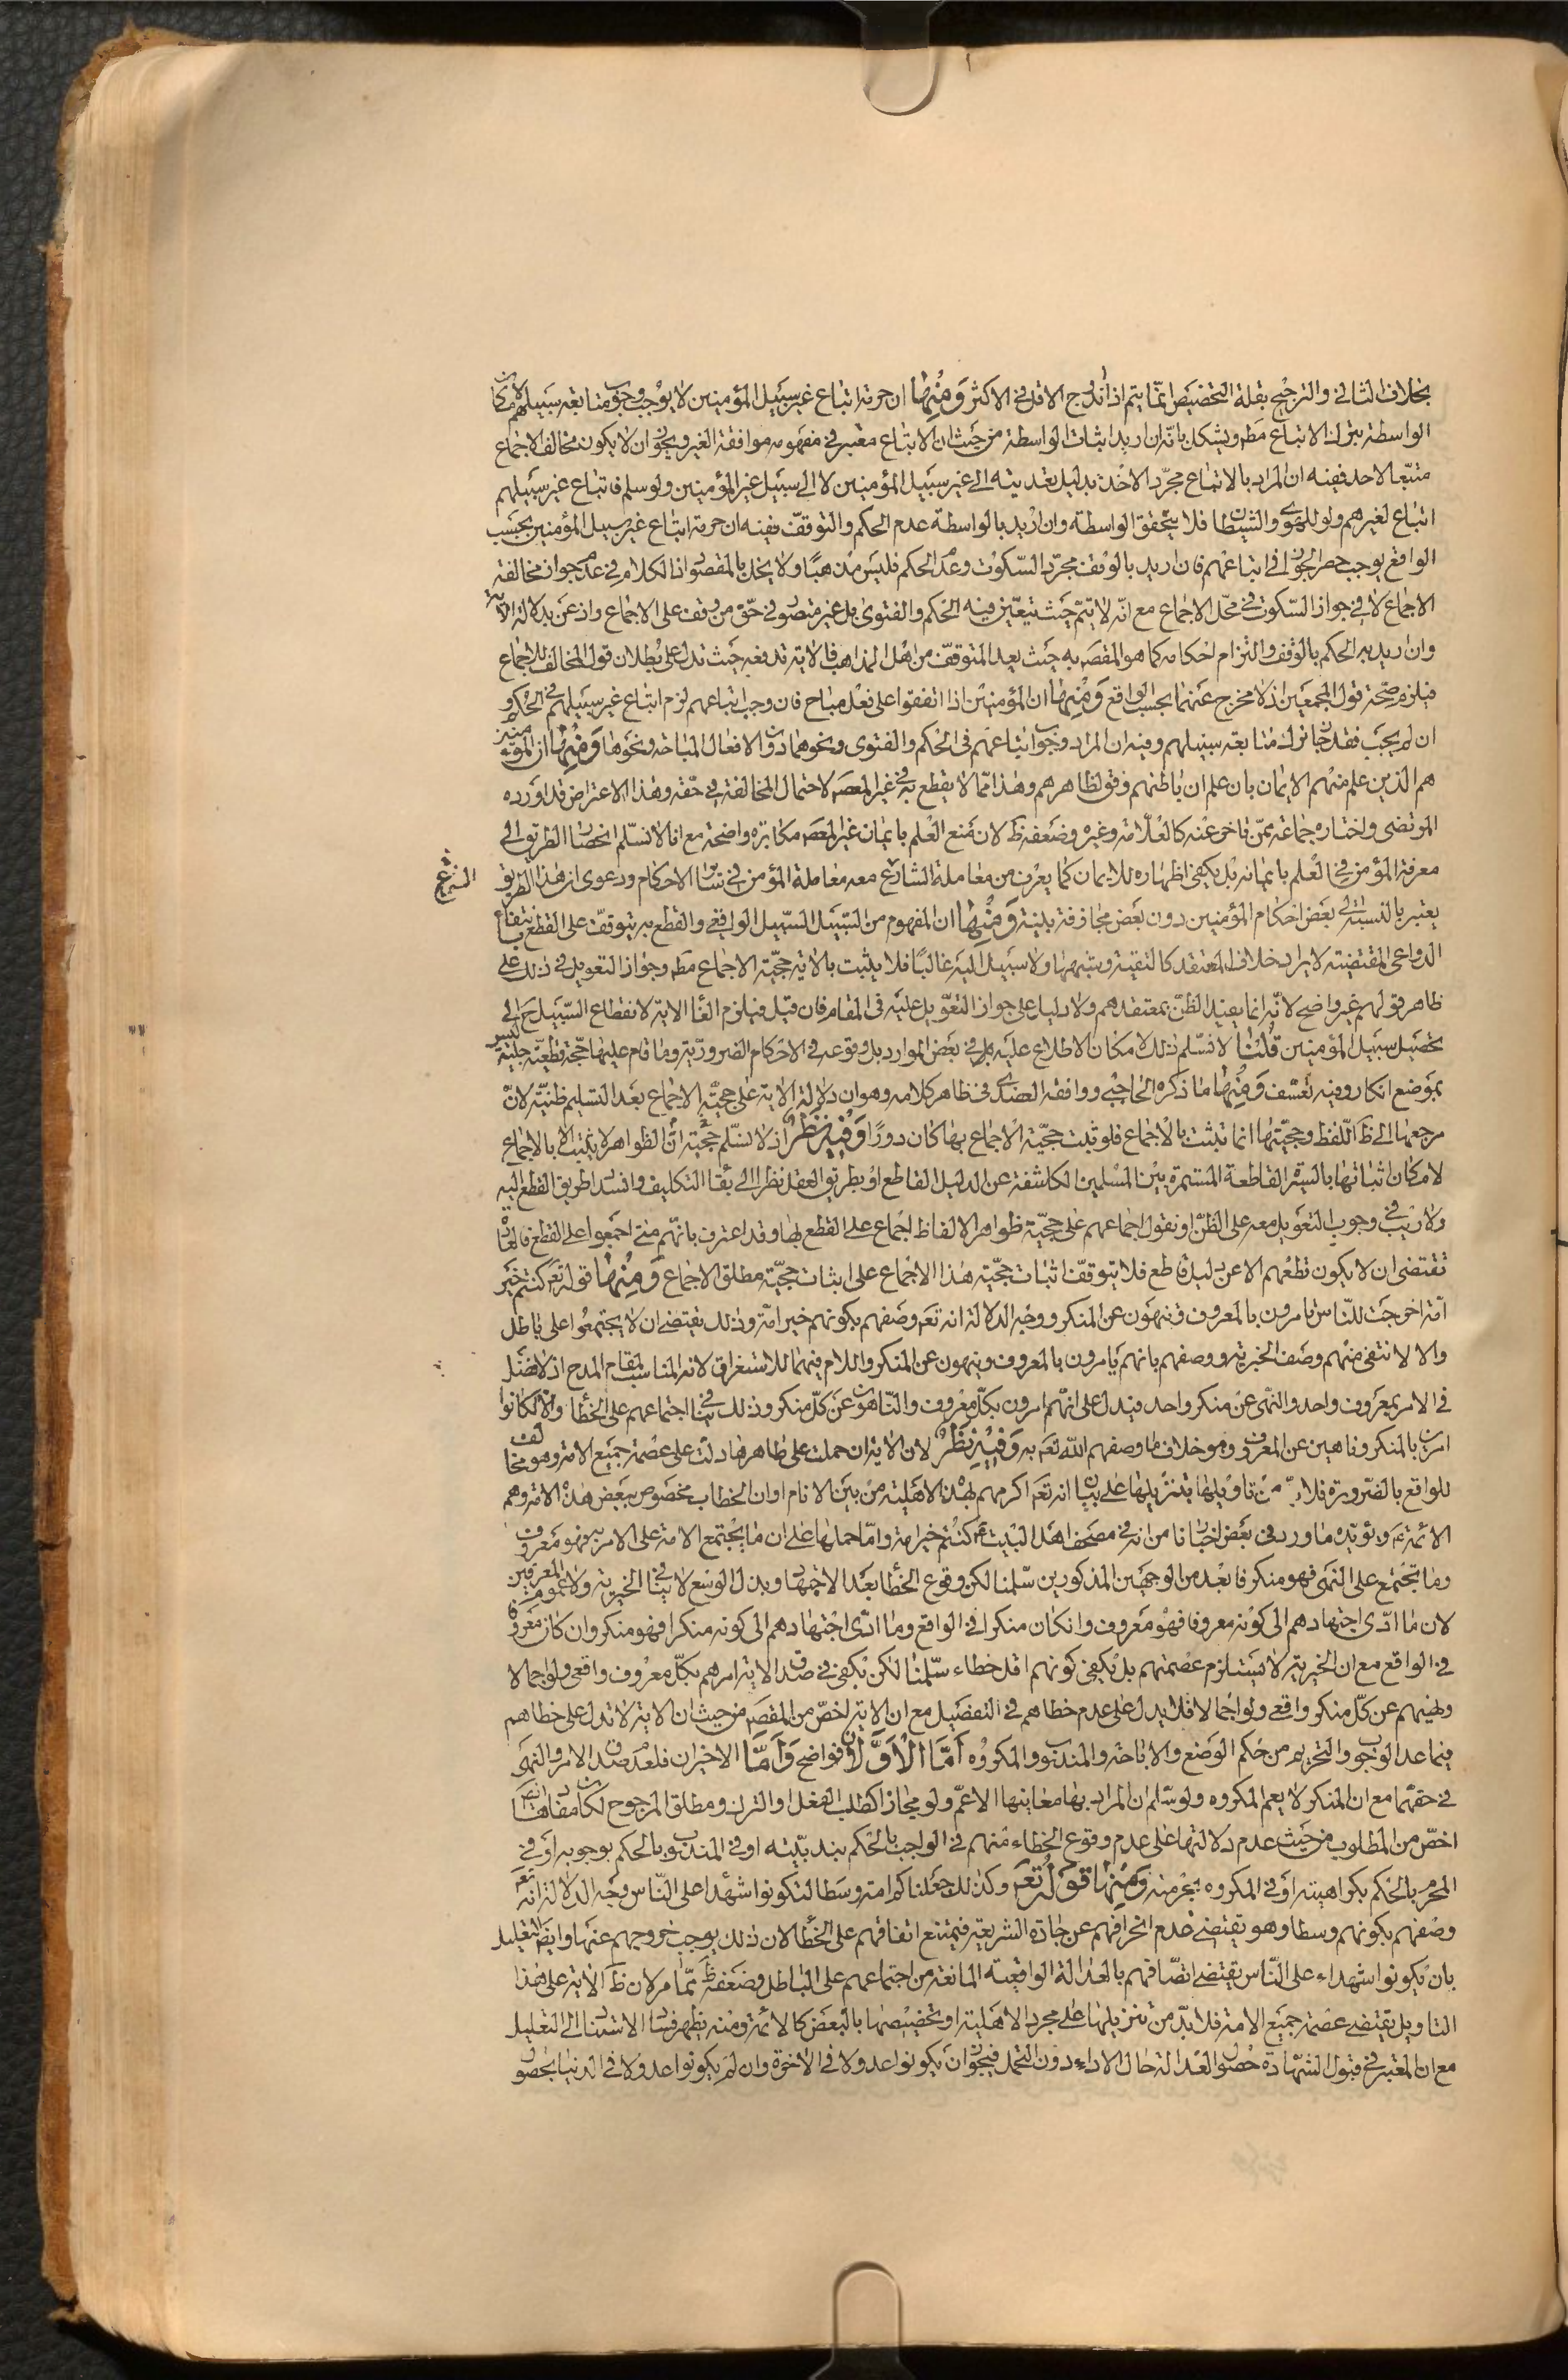 بخلاف الثاني والترجيح بقلة التخصيص انما يتم اذا اندرج الاقل في الاكثر ومنها ان حرمة اتباع غير سبيل المؤمنين لا يوجب وجوب متابعة سبيلهم لامكان
الواسطة بترك الاتباع مطم ويشكل بانه ان اريد اثبات الواسطة من حيث ان الاتباع معتبر في مفهومه موافقة الغير ويجوز ان لا يكون مخالف الاجماع
متبعا لاحد ففيه ان المراد بالاتباع مجرد الاخذ بدليل تعديته الى غير سبيل المؤمنين لا الى سبيل غير المؤمنين ولو سلم فاتباع غير سبيلهم
اتباع لغيرهم ولو للهوى والشيطان فلا يتحقق الواسطة وان اريد بالواسطة عدم الحكم والتوقف ففيه ان حرمة اتباع غير سبيل المؤمنين بحسب
الواقع يوجب حصر الجواز في اتباعهم فان اريد بالوقف مجرد السكوت وعدم الحكم فليس مذهبا ولا يخل بالمقصود اذ الكلام في عدم جواز مخالفة
الاجماع لا في جواز السكوت في محل الاجماع مع انه لا يتم حيث يتعين فيه الحكم والفتوى بل غير متصور في حق من وقف على الاجماع واذعن بدلالة الاية
وان اريد به الحكم بالوقف والتزام احكامه كما هو المقصم به حيث يعد المتوقف من اهل المذاهب فالاية تدفعه حيث تدل على بطلان قول المخالف للاجماع
فيلزم صحة قول المجمعين اذ لا مخرج عنهما بحسب الواقع ومنها ان المؤمنين اذا اتفقوا على فعل مباح فان وجب اتباعهم لزم اتباع غير سبيلهم في الحكم و
ان لم يجب فقد جاز ترك متابعة سبيلهم وفيه ان المراد وجوب اتباعهم في الحكم والفتوى ونحوهما دون الافعال المباحة ونحوها ومنها ان المؤمنين
هم الذين علم منهم الايمان بان علم ان باطنهم وفق لظاهرهم وهذا مما لا يقطع به في غير المعصم لاحتمال المخالفة في حقه وهذا الاعتراض قد اورده
المرتضى واختاره جماعة ممن تاخر عنه كالعلامة وغيره وضعفه ظ لان منع العلم بايمان غير المعصم مكابرة واضحة مع انا لا نسلم انحصار الطريق الى
معرفة المؤمن في العلم بايمانه بل يكفي اظهاره للايمان كما يعرف من معاملة الشارع معه معاملة المؤمن في سائر الاحكام ودعوى ان هذا الطريق
الشرعي
يعتبر بالنسبة الى بعض احكام المؤمنين دون بعض مجازفة بينة ومنها ان المفهوم من السبيل السبيل الواقعي والقطع به يتوقف على القطع بانتفاء
الدواعي المقتضية لايراد خلاف المعتقد كالتقية وشبهها ولا سبيل اليه غالبا فلا يثبت بالاية حجية الاجماع مطم وجواز التعويل في ذلك على
ظاهر قولهم غير واضح لانه انما يفيد الظن بمعتقدهم ولا دليل على جواز التعويل عليه في المقام فان قيل فيلزم الغاء الاية لانقطاع السبيل ح الى
تحصيل سبيل المؤمنين قلنا لا نسلم ذلك لامكان الاطلاع عليه في بعض الموارد بل وقوعه في الاحكام الضرورية وما قام عليها حجة قطعية جلية ليس
بموضع انكار وفيه تعسف ومنها ما ذكره الحاجبي ووافقه العضدي في ظاهر كلامه وهو ان دلالة الاية على حجية الاجماع بعد التسليم ظنية لان
مرجعها الى ظ اللفظ وحجيتها انما تثبت بالاجماع فلو ثبت حجية الاجماع بها كان دورا وفيه نظر اذ لا نسلم ان حجية الظواهر لا تثبت الا بالاجماع
لامكان اثباتها بالسيرة القاطعة المستمرة بين المسلمين الكاشفة عن الدليل القاطع او بطريق العقل نظرا الى بقاء التكليف وانسداد طريق القطع اليه
ولا ريب في وجوب التعويل معه على الظن او نقول اجماعهم على حجية ظواهر الالفاظ اجماع على القطع بها وقد اعترف بانهم متى اجمعوا على القطع فالعادة
تقتضي ان لا يكون قطعهم الا عن دليل قاطع فلا يتوقف اثبات حجية هذا الاجماع على اثبات حجية مطلق الاجماع ومنها قوله تعم كنتم خير
امة اخرجت للناس تامرون بالمعروف وتنهون عن المنكر ووجه الدلالة انه تعم وصفهم بكونهم خير امة وذلك يقتضي ان لا يجتمعوا على باطل
والا لانتفى منهم وصف الخيرية ووصفهم بانهم يامرون بالمعروف وينهون عن المنكر واللام فيهما للاستغراق لانه المناسب لمقام المدح اذ لا فضل
في الامر بمعروف واحد والنهي عن منكر واحد فيدل على انهم امرون بكل معروف والناهون عن كل منكر وذلك ينافي اجتماعهم على الخطأ والا لكانوا
امرين بالمنكر وناهين عن المعروف وهو خلاف ما وصفهم الله تعم به وفيه نظر لان الاية ان حملت على ظاهرها دلت على عصمة جميع الامة وهو مخالف
للواقع بالضرورة فلا بد من تاويلها بتنزيلها على بيان انه تعم اكرمهم بهذه الاهلية من بين الانام او ان الخطاب مخصوص ببعض هذه الامة وهم
الائمة عم ويؤيده ما ورد في بعض اخبارنا من انه في مصحف اهل البيت عم كنتم خير امة واما حملها على ان ما يجتمع الامة على الامر به فهو معروف
وما تجتمع على النهي فهو منكر فابعد من الوجهين المذكورين سلمنا لكن وقوع الخطأ بعد الاجتهاد وبذل الوسع لا ينافي الخيرية ولا عموم المعرفين
لان ما ادى اجتهادهم الى كونه معروفا فهو معروف وان كان منكرا في الواقع وما ادى اجتهادهم الى كونه منكرا فهو منكر وان كان معروفا
في الواقع مع ان الخيرية لا يستلزم عصمتهم بل يكفي كونهم اقل خطاء سلمنا لكن يكفي في صدق الاية امرهم بكل معروف واقعي ولو اجمالا
ونهيهم عن كل منكر واقعي ولو اجمالا فلا يدل على عدم خطاهم في التفصيل مع ان الاية اخص من المقصم من حيث ان الاية لا تدل على خطاهم
فيما عدا الوجوب والتحريم من حكم الوضع والاباحة والمندوب والمكروه اما الاولان فواضح واما الاخيران فلعدم صدق الامر والنهي
في حقهما مع ان المنكر لا يعم المكروه ولو سلم ان المراد بها معانيها الاعم ولو مجازا كطلب الفعل او الترك ومطلق المرجوح لكان مفادها ايضم
اخص من المطلوب من حيث عدم دلالتها على عدم وقوع الخطاء منهم في الواجب بالحكم بندبيته او في المندوب بالحكم بوجوبه او في
المحرم بالحكم بكراهيته او في المكروه بتحريمه ومنها قوله تعم وكذلك جعلناكم امة وسطا لتكونوا شهداء على الناس وجه الدلالة انه تعم
وصفهم بكونهم وسطا وهو يقتضي عدم انحرافهم عن جادة الشريعة فيمتنع اتفاقهم على الخطأ لان ذلك يوجب خروجهم عنها وايضم التعليل
بان يكونوا شهداء على الناس يقتضي اتصافهم بالعدالة الواقعية المانعة من اجتماعهم على الباطل وضعفه ظ مما مر لان ظ الاية على هذا
التاويل يقتضي عصمة جميع الامة فلا بد من تنزيلها على مجرد الاهلية او تخصيصها بالبعض كالائمة ومنه يظهر فساد الاستناد الى التعليل
مع ان المعتبر في قبول الشهادة حصول العدالة حال الاداء دون التحمل فيجوز ان يكونوا عدولا في الاخرة وان لم يكونوا عدولا في الدنيا بحصول